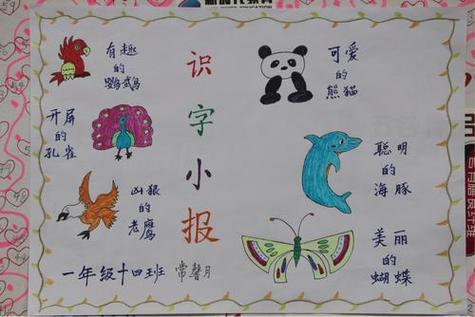 识字小报
有趣
的
鹦鹉
开屏
的
孔雀
凶狠
的
老鹰
可爱
的
熊猫
聪明
的
海豚
美丽
的
蝴蝶
一年级十四班 常馨月